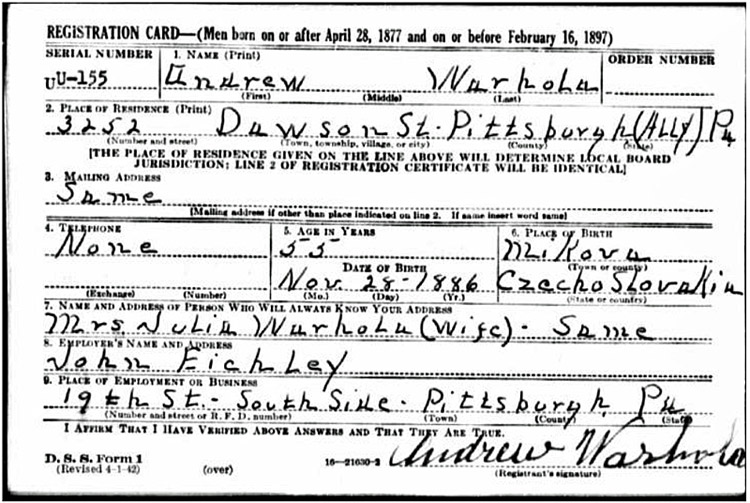 REGISTRATION CARD—(Men born on or after April 28, 1877 and on or before February 16, 1897)
SERIAL NUMBER 1. NAME (Print) ORDER NUMBER
UU-155 Andrew Warhola
(First) (Middle) (Last)
2. PLACE OF RESIDENCE (Print)
3252 Dawson St. Pittsburgh (ALLY) Pa
(Number and street) (Town, township, village, or city) (County) (State)
[THE PLACE OF RESIDENCE GIVEN ON THE LINE ABOVE WILL DETERMINE LOCAL BOARD
JURISDICTION; LINE 2 OF REGISTRATION CERTIFICATE WILL BE IDENTICAL]
3. MAILING ADDRESS
Same
[Mailing address if other than place indicated on line 2. If same insert word same]
4. TELEPHONE 5. AGE IN YEARS 6. PLACE OF BIRTH
None 55 Mikova
(Town or county)
DATE OF BIRTH
Nov. 28-1886 CzechoSlovakia
(Exchange) (Number) (Mo.) (Day) (Yr.) (State or country)
7. NAME AND ADDRESS OF PERSON WHO WILL ALWAYS KNOW YOUR ADDRESS
Mrs. Julia Warhola (Wife) - Same
8. EMPLOYER'S NAME AND ADDRESS
John Eichley
9. PLACE OF EMPLOYMENT OR BUSINESS
19th St - South Side - Pittsburgh, Pa
(Number and street or R. F. D. number) (Town) (County) (State)
I AFFIRM THAT I HAVE VERIFIED ABOVE ANSWERS AND THAT THEY ARE TRUE.
D. S. S. Form 1
(Revised 4-1-42) (over) 16—21630-2 Andrew Warhola
(Registrant's signature)